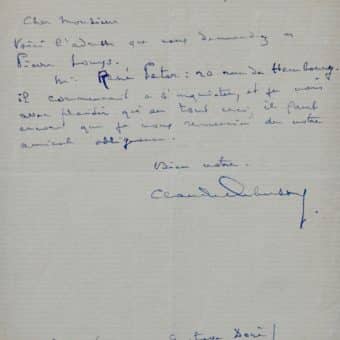 Cher Monsieur
Voici l'adresse que vous demandez a
Pierre Louys.
Mr René Peter : 20 rue de Hambourg.
il commençait a s'inquiéter, et je vais
plaider qu'en tout ceci, il faut
encore que je vous remercie de votre
amicale obligeance.
Bien votre.
Claude Debussy
Doré